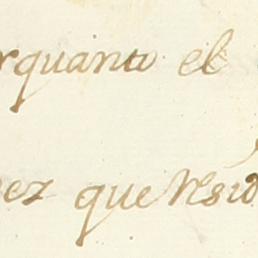 rquanto el
ez que Resid